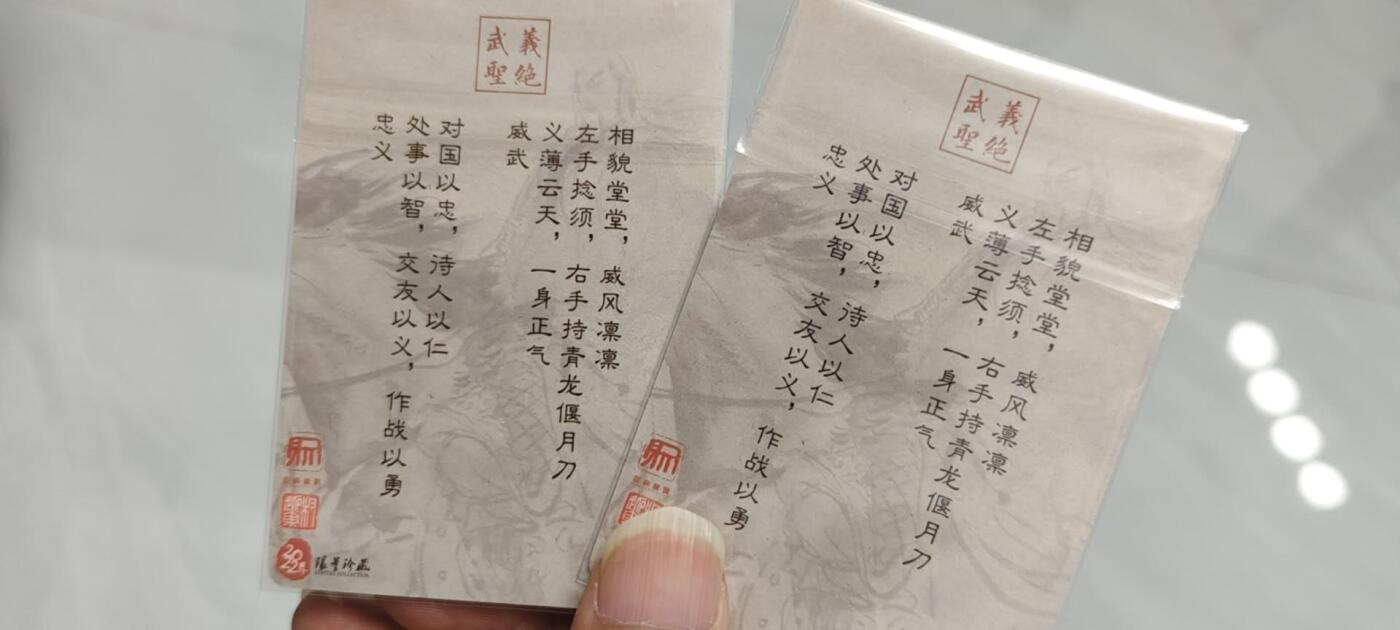 義絶
武聖
相貌堂堂，威风凛凛
左手捻须，右手持青龙偃月刀
义薄云天，一身正气
威武
对国以忠，待人以仁
处事以智，交友以义，作战以勇
忠义
限量珍藏
LIMITED COLLECTION
義絶
武聖
相貌堂堂，威风凛凛
左手捻须，右手持青龙偃月刀
义薄云天，一身正气
威武
对国以忠，待人以仁
处事以智，交友以义，作战以勇
忠义